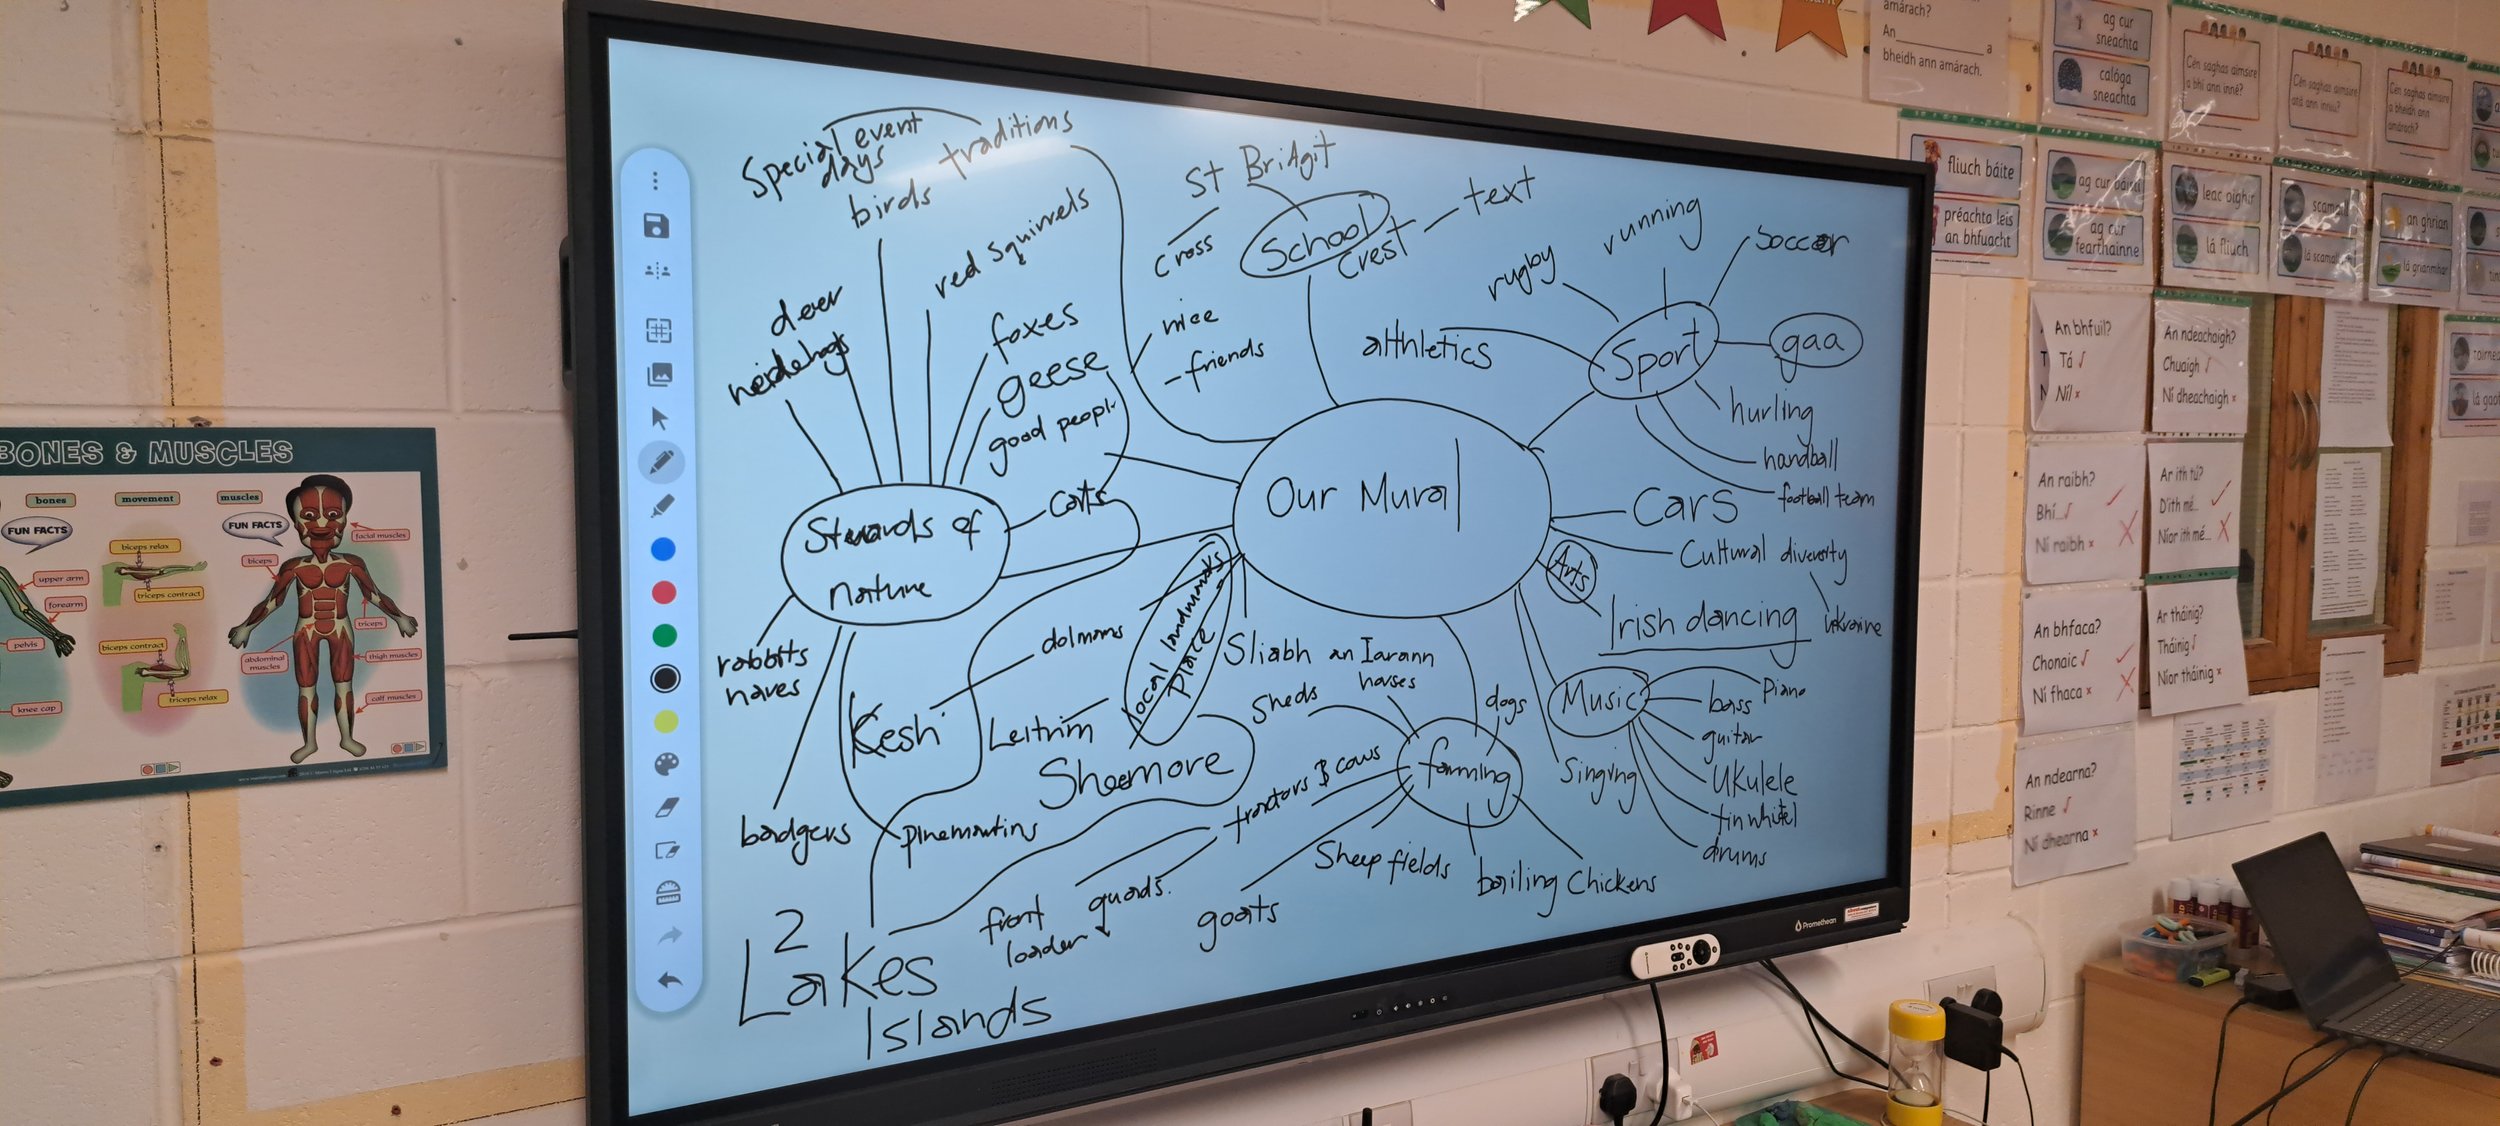 Special event
days
traditions
birds
red squirrels
deer
foxes
geese
good people
cats
Stewards of
nature
rabbits
hares
badgers
pinemartins
Kesh
dolmens
Leitrim
Sheemore
local landmarks
place
2
Lakes
Islands
St BriAgit
School
crest
text
cross
nice
-friends
Our Mural
Sport
rugby
running
soccer
gaa
hurling
handball
football team
althletics
Cars
Cultural diversity
Ukraine
Arts
Irish dancing
Music
Piano
bass
guitar
UKulele
tin whitel
drums
Singing
Sliabh an Iarann
farming
Sheds
horses
dogs
tractors & cows
front
loader
quads.
goats
Sheep fields
boiling Chickens
Promethean
BONES & MUSCLES
bones
movement
muscles
FUN FACTS
FUN FACTS
upper arm
forearm
pelvis
knee cap
biceps relax
triceps contract
biceps contract
triceps relax
facial muscles
biceps
triceps
abdominal
muscles
thigh muscles
calf muscles
amárach?
An a
bheidh ann amárach.
ag cur
sneachta
calóga
sneachta
Cén saghas aimsire
a bhí ann inné?
Cén saghas aimsire
atá ann inniu?
Cén saghas aimsire
a bheidh ann
amárach?
fliuch báite
préachta leis
an bhfuacht
ag cur báistí
ag cur
fearthainne
leac oighir
lá fliuch
lá scamallach
an ghrian
lá grianmhar
An bhfuil?
Tá √
Níl x
An ndeachaigh?
Chuaigh √
Ní dheachaigh x
An raibh?
Bhí...√
Ní raibh x
Ar ith tú?
D'ith mé...
Níor ith mé...
An bhfaca?
Chonaic √
Ní fhaca x
Ar tháinig?
Tháinig √
Níor tháinig x
An ndearna?
Rinne √
Ní dhearna x